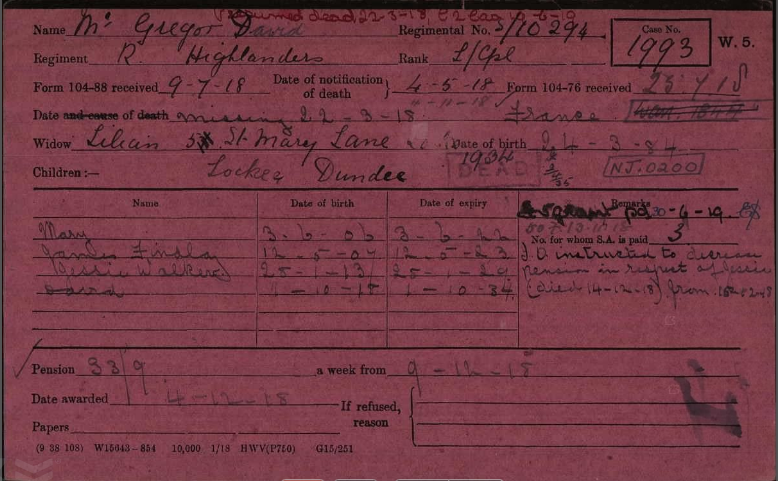 Presumed dead 22-3-18
Name Mc Gregor David Regimental No. S/10294 Case No. 1993 W. 5.
Regiment R. Highlanders Rank L/Cpl
Form 104-88 received 9-7-18 Date of notification of death } 4-5-18 Form 104-76 received
Date and cause of death missing 22-3-18 France
Widow Lilian St. Mary Lane Date of birth 24-3-84
1934 DEAD NJ.0200
Children:— Lochee Dundee
Name Date of birth Date of expiry Remarks
pd 30-6-19
Mary 3-6-06 3-6-22 No. for whom S.A. is paid 3
James Findlay 12-5-07 12-5-23 I.O instructed to decrease
Jessie Walker 25-1-13 25-1-29 pension in respect of Jessie
David 1-10-18 1-10-34 (died 14-12-18) from
Pension 33/9 a week from 9-12-18
Date awarded 4-12-18 If refused, reason {
Papers
(9 38 108) W15643—854 10,000 1/18 HWV(P750) G15/251